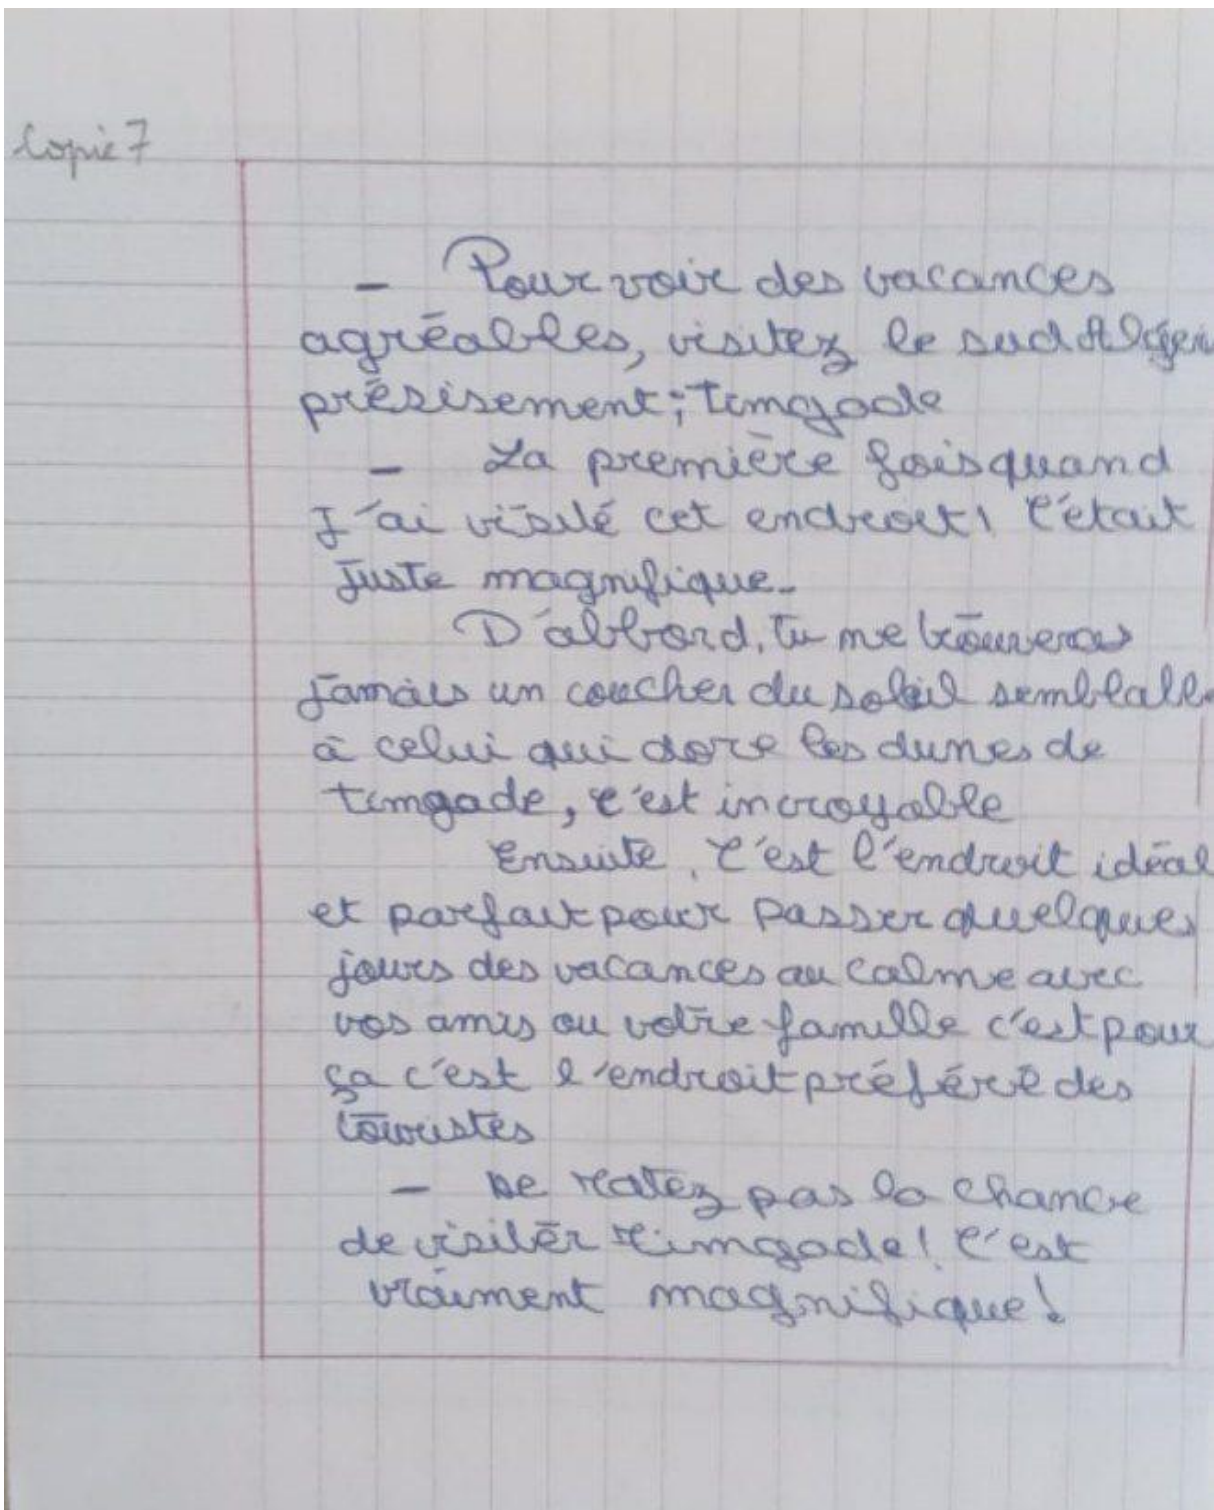 Copie 7
- Pour voir des vacances
agréables, visitez le sud Algéri
présisement; timgade
- La première fois quand
J'ai visité cet endroit! C'était
Juste magnifique.
D'abbord, Tu me trouveras
Jamais un coucher du soleil semblable
à celui qui dore les dunes de
timgade, c'est incroyable
Ensuite, C'est l'endroit idéal
et parfait pour passer quelques
jours des vacances au calme avec
vos amis ou votre famille c'est pour
ça c'est l'endroit préféré des
touristes
- Ne ratez pas la chance
de visiter timgade! C'est
vraiment magnifique!